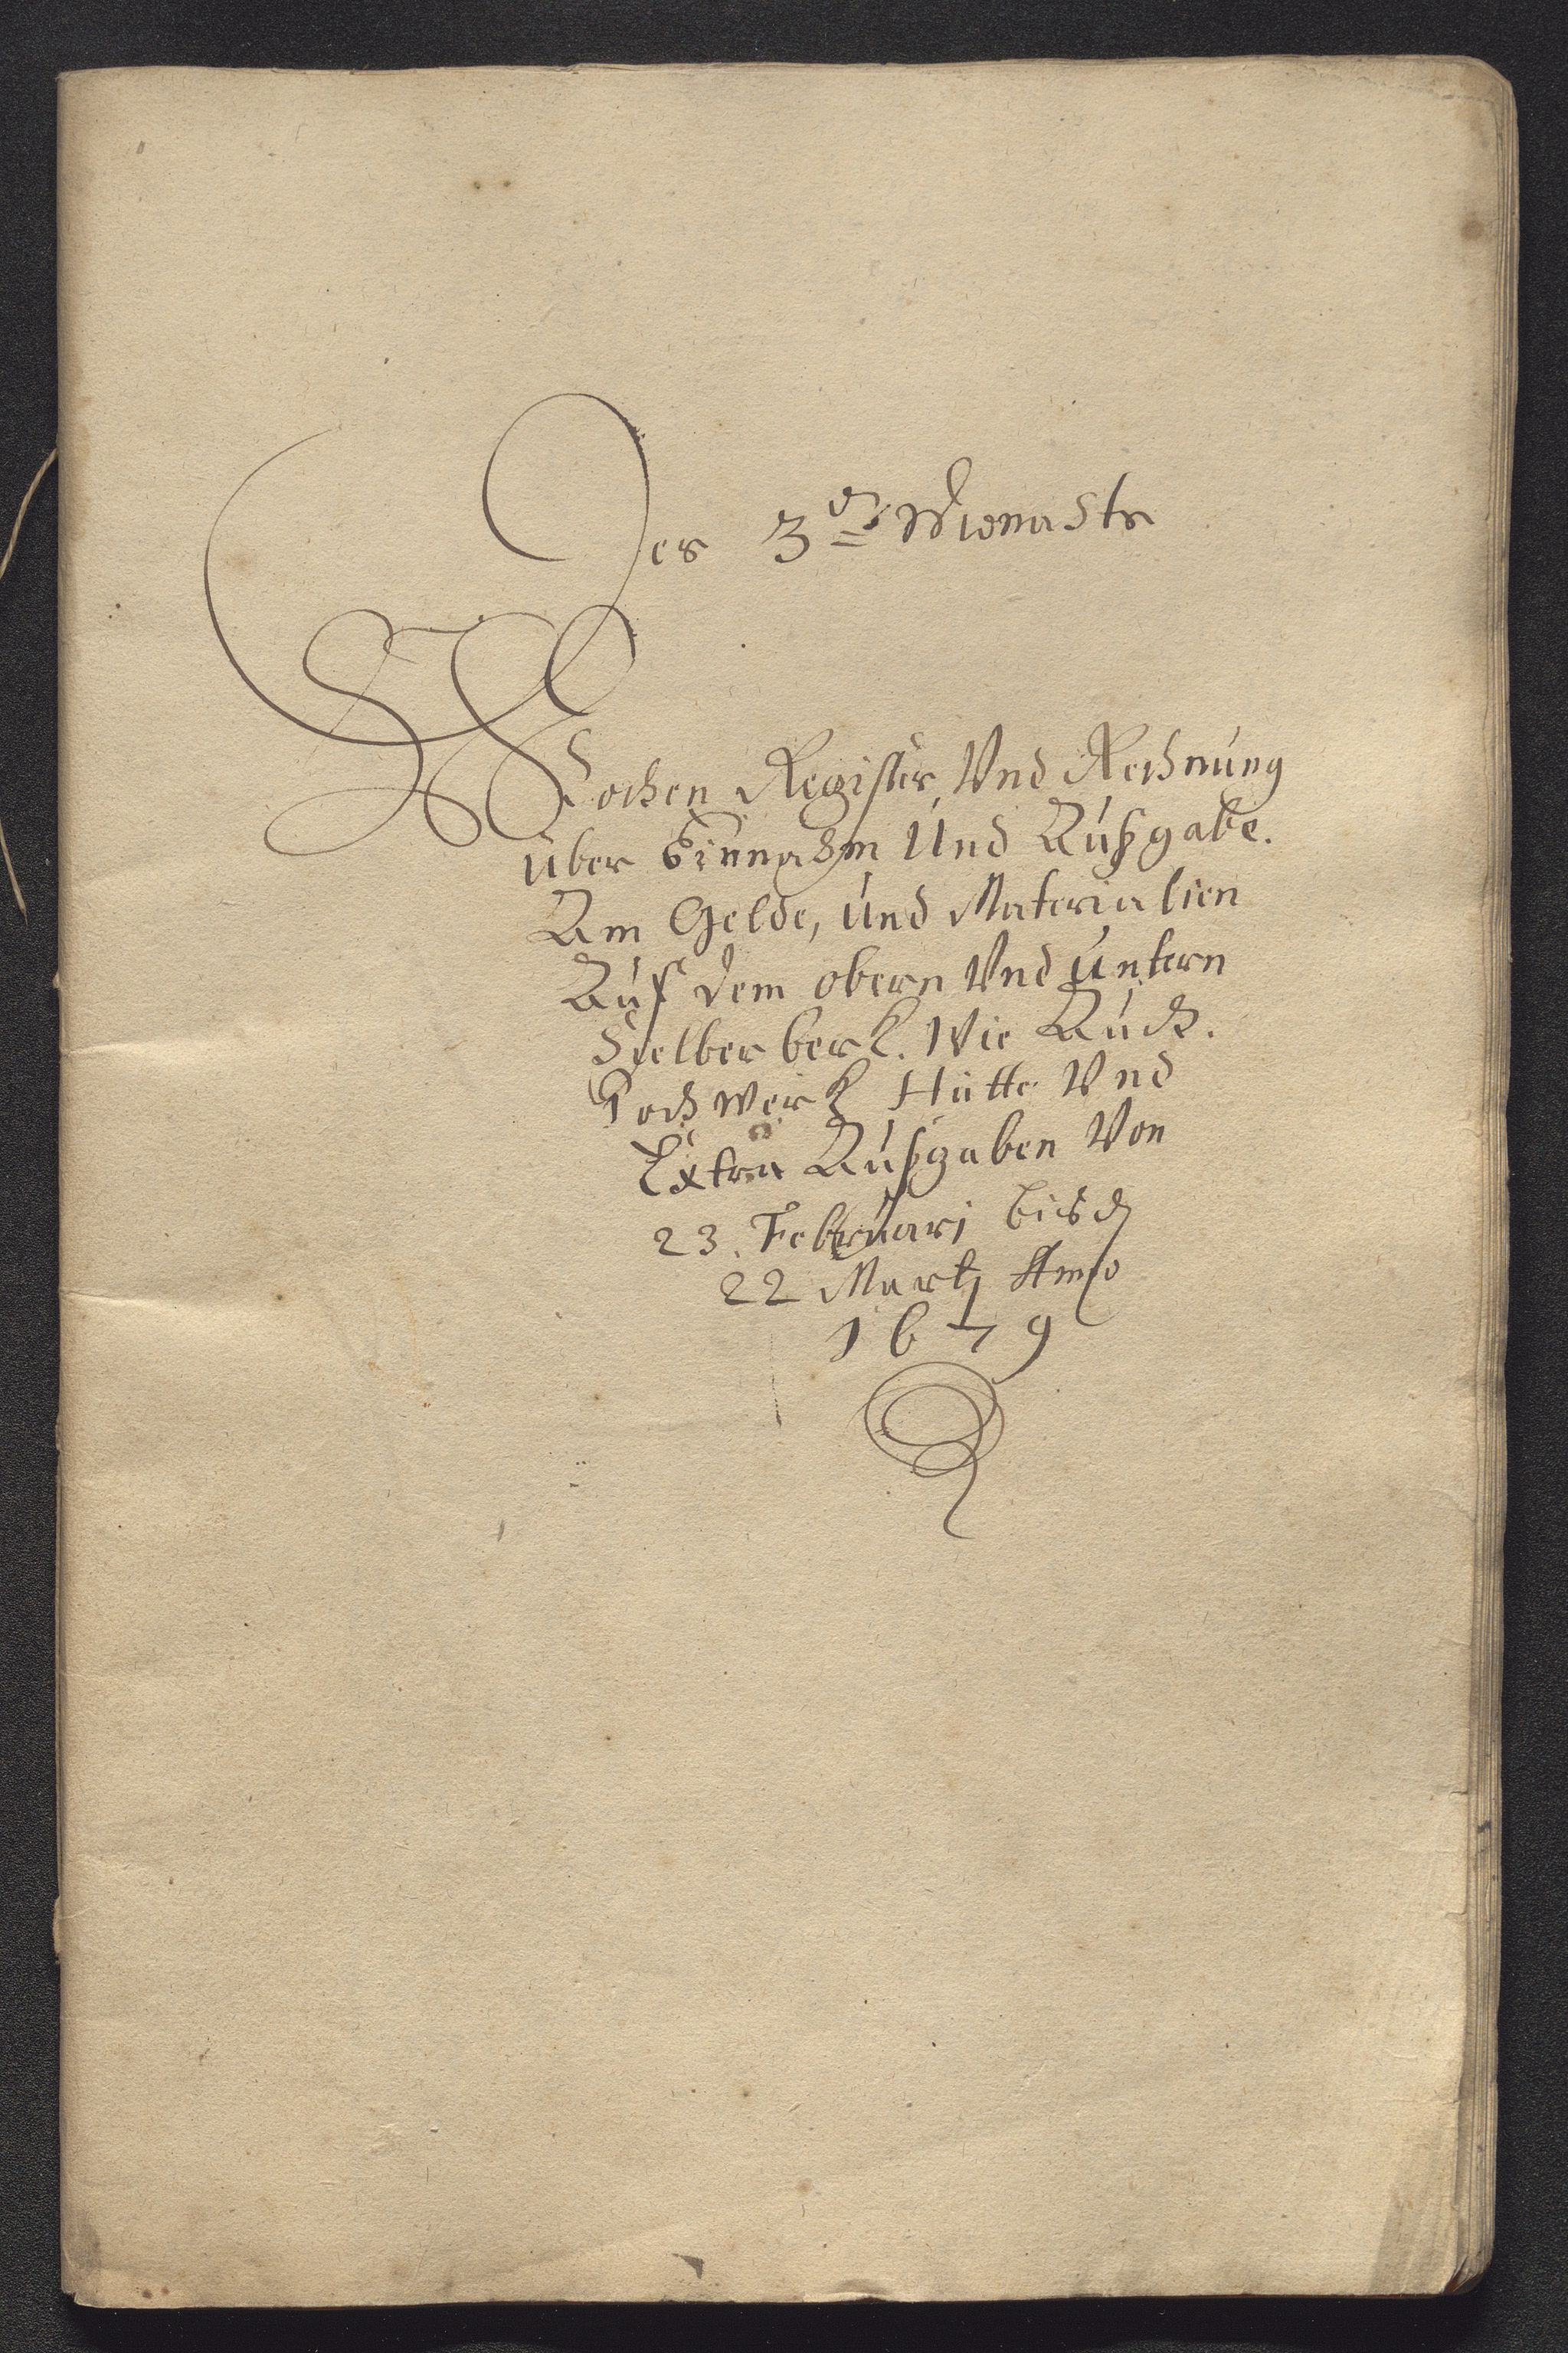 Des 3ᵈ Monaths
Wochen Register Vnd Rechnung
über Einnahm Und Außgabe.
Am Gelde, und Materialien
Auf dem obern Vnd untern
Sielber berk. Wie Auch.
Poch werk Hütte Vnd
Extra Außgaben Von
23. Februari bis d
22 Martj Anno
1679